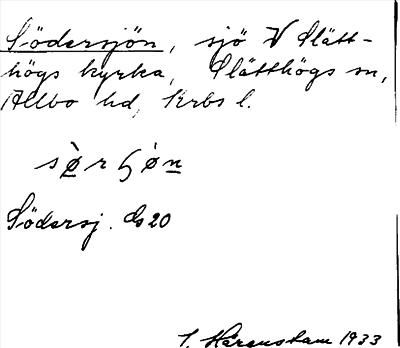 Södersjön, sjö V Slätt-
högs kyrka, Slätthögs sn,
Allbo hd, Krbs l.
sø̀rʃøn
Södersj. Gs 20
J. Härenstam 1933